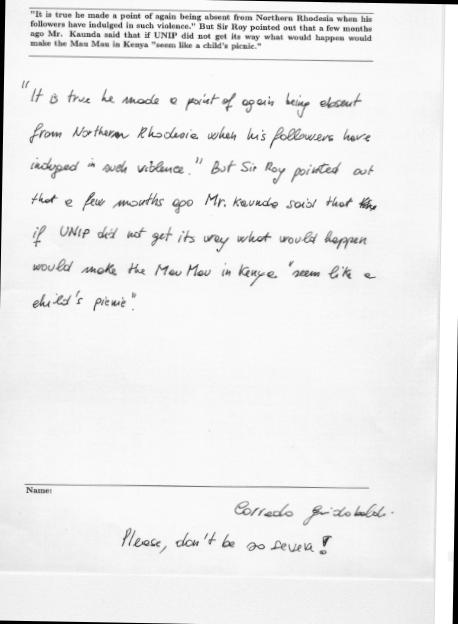 "It is true he made a point of again being absent from Northern Rhodesia when his
followers have indulged in such violence." But Sir Roy pointed out that a few months
ago Mr. Kaunda said that if UNIP did not get its way what would happen would
make the Mau Mau in Kenya "seem like a child's picnic."
"It is true he made a point of again being absent
from Northern Rhodesia when his followers have
indulged in such violence." But Sir Roy pointed out
that a few months ago Mr. Kaunda said that
if UNIP did not get its way what would happen
would make the Mau Mau in Kenya "seem like a
child's picnic".
Name:
Corrado
Please, don't be so severe!